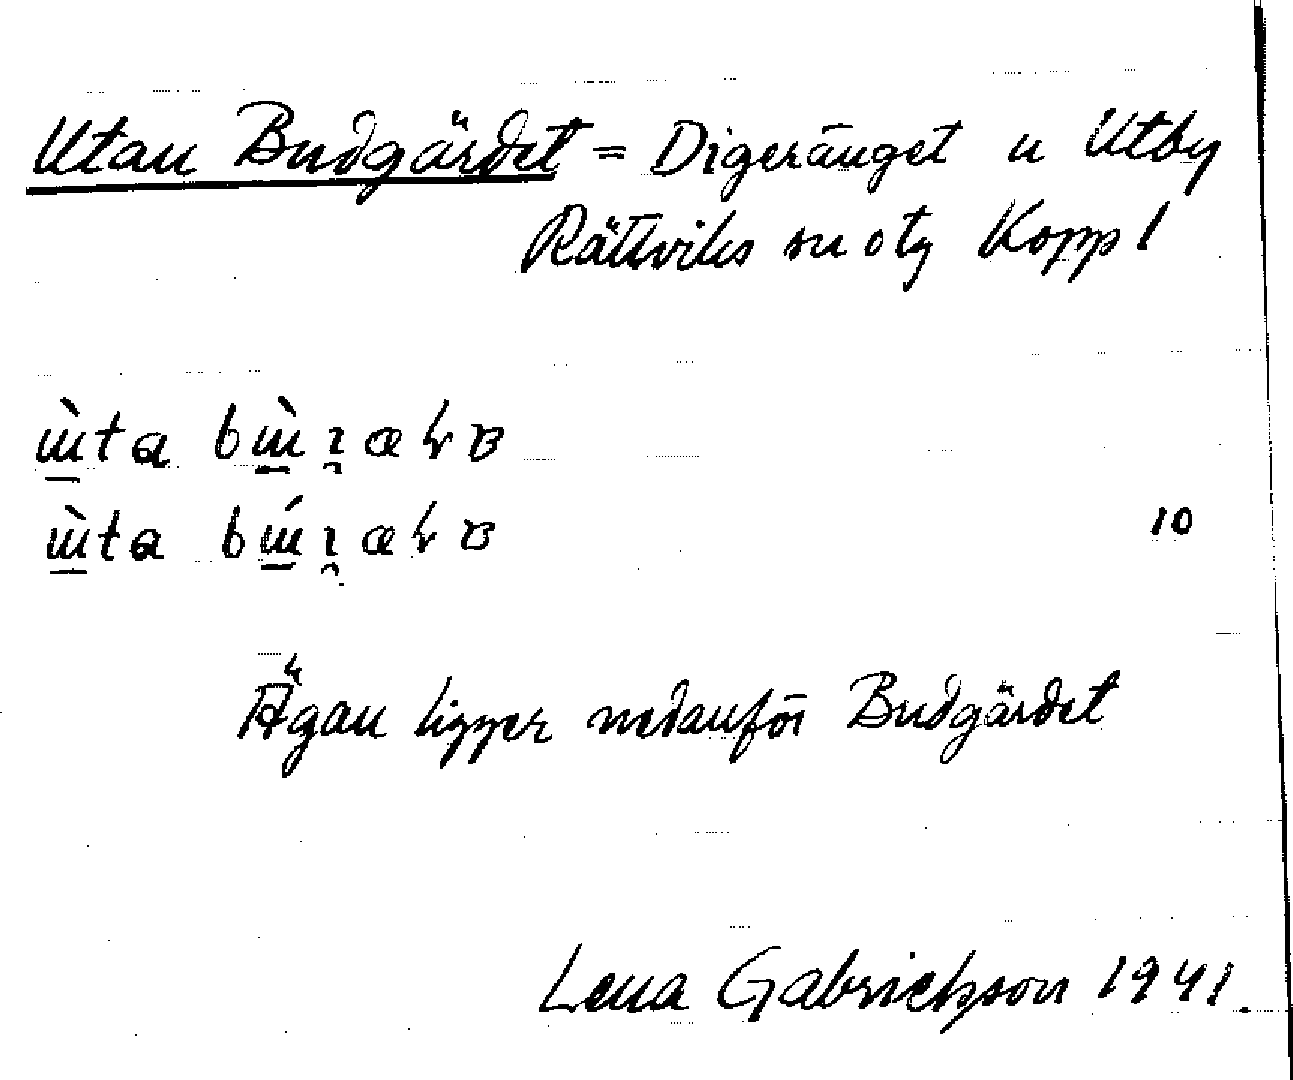 Utan Budgärdet = Digeränget u Utby
Rättviks sn o tg Kopp l
ɯ̀ta bɯ̀
ɯ̀ta bɯ́
10
Ägan ligger nedanför Budgärdet
Lena Gabrielsson 1941.